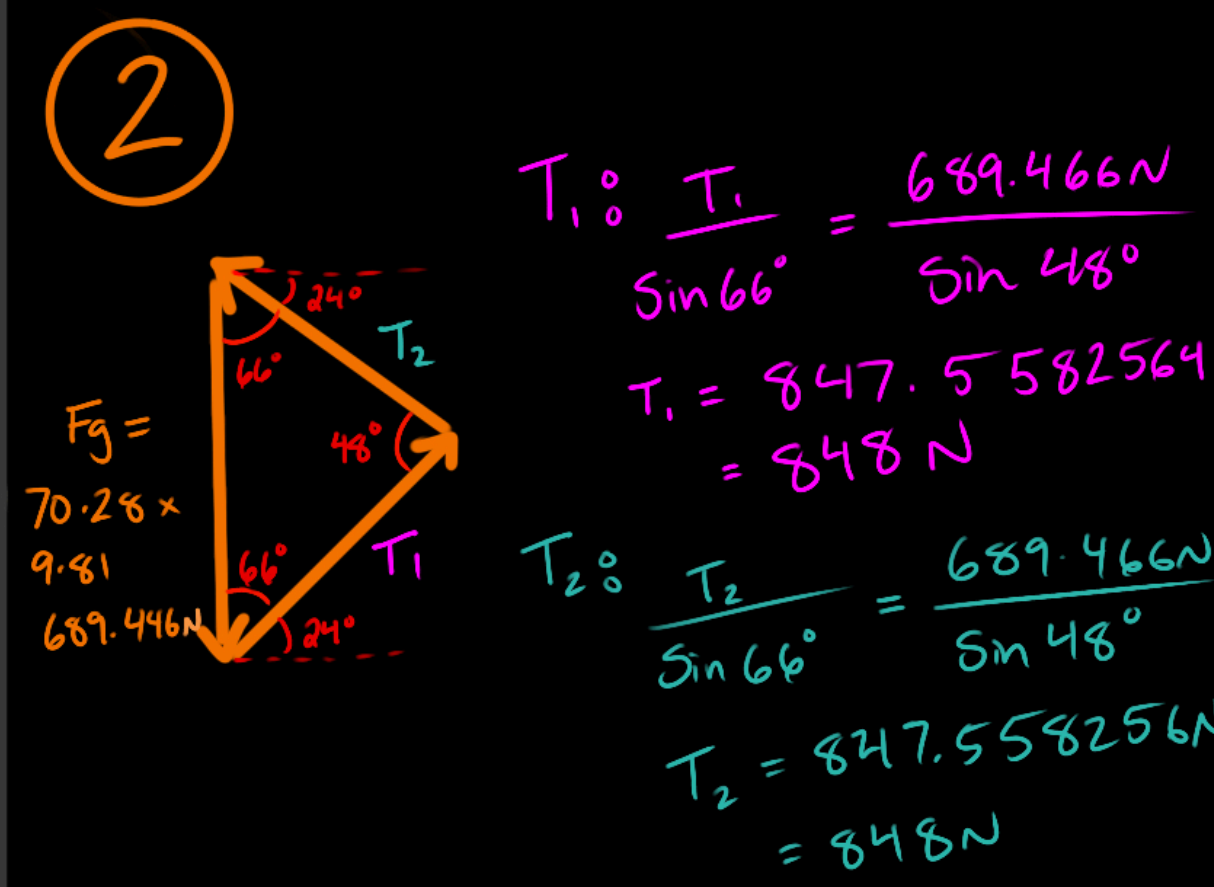 2
24°
66°
T₂
Fg =
70.28 x
9.81
689.446N
48°
66°
T₁
24°
T₁: T₁ / Sin 66° = 689.466N / Sin 48°
T₁ = 847.5582564
= 848 N
T₂: T₂ / Sin 66° = 689.466N / Sin 48°
T₂ = 847.558256N
= 848N